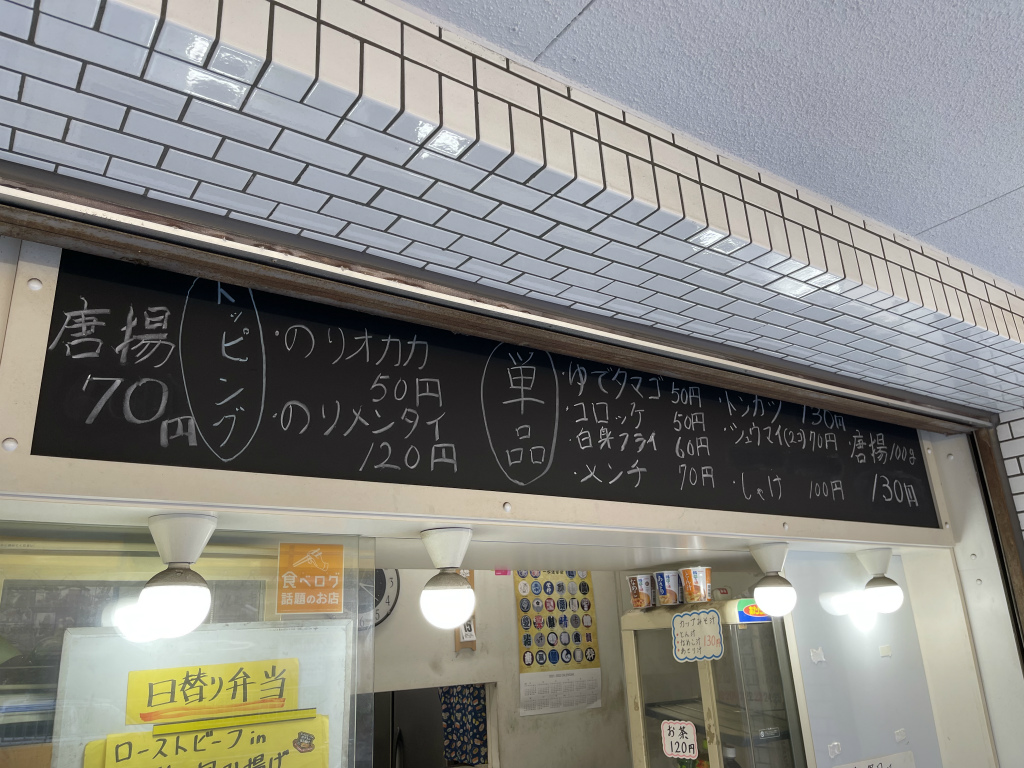 唐揚
70円
トッピング
・のりオカカ
50円
・のりメンタイ
120円
単品
・ゆでタマゴ 50円
・コロッケ 50円
・白身フライ 60円
・メンチ 70円
・トンカツ 130円
・シュウマイ(2コ) 70円
・しゃけ 100円
・唐揚100g
130円
食べログ
話題のお店
日替り弁当
ローストビーフin
カップみそ汁
130円
お茶
120円